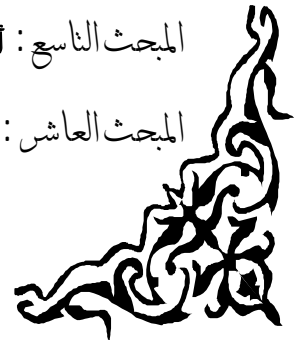 المبحث التاسع :
المبحث العاشر :